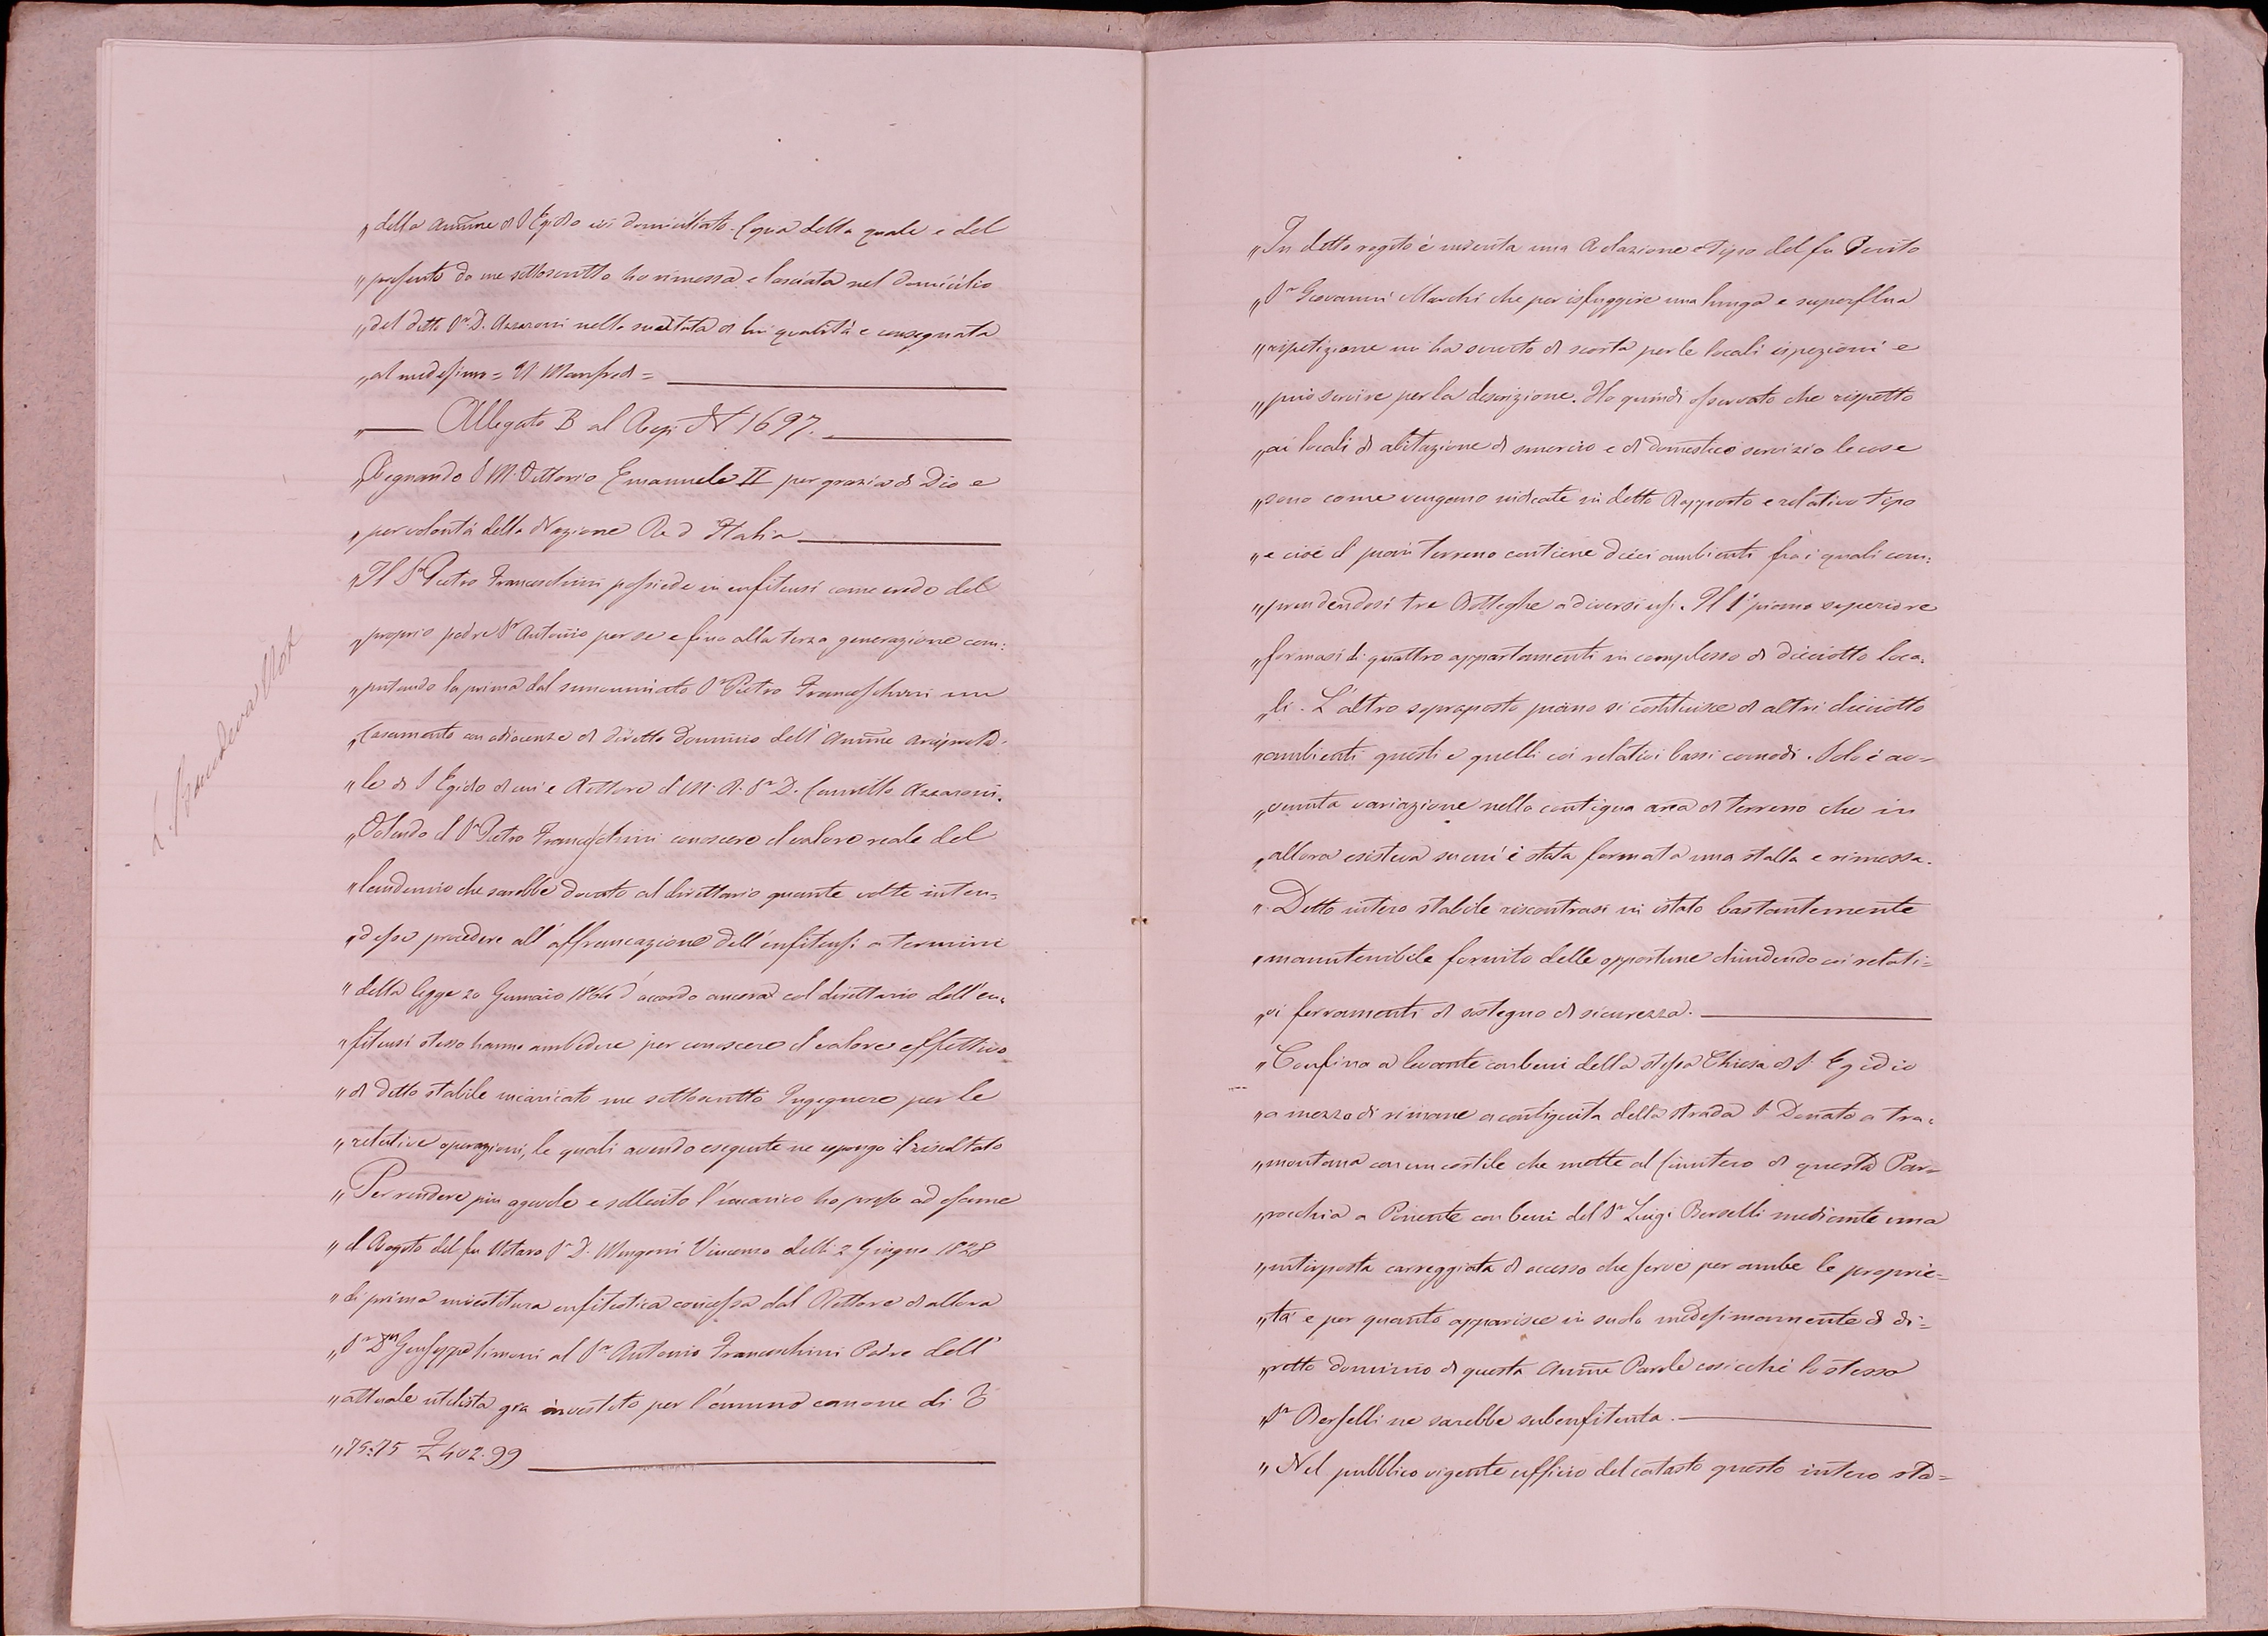 „ della Amme di S. Egidio ivi domiciliato. Copia della quale e del
„ presente da me sottoscritto ho rimessa e lasciata nel domicilio
„ del detto Sr. D. Azzaroni nella suddetta di lui qualità e consegnata
„ al medesimo = Manfredi =
„ Allegato B al Rep: N 1697.
„ Regnando S. M. Vittorio Emanuele II per grazia di Dio e
„ per volontà della Nazione Re d'Italia
„ Il Sr. Pietro Franceschini possiede in enfiteusi come erede del
„ proprio padre Sr. Antonio per se e fino alla terza generazione com:
„ putando la prima dal sunnominato Sr. Pietro Franceschini un
„ Casamento con adiacenze di diretto dominio dell'Amme
„ le di S. Egidio di cui è Rettore il M. R. Sr. D. Camillo Azzaroni.
„ Volendo il Sr. Pietro Franceschini conoscere il valore reale del
„ laudemio che sarebbe dovuto al direttario quante volte inten=
„ desse procedere all'affrancazione dell'enfiteusi a termini
„ della legge 20 Gennaio 1864 d'accordo ancora col direttario dell'en=
„ fiteusi stesso hanno ambedue per conoscere il valore effettivo
„ di detto stabile incaricato me sottoscritto Ingegnere per le
„ relative operazioni, le quali avendo eseguite ne espongo il risultato
„ Per rendere più agevole e sollecito l'incarico ho preso ad esame
„ il Rogito del fu Notaro Sr. D. Mengoni Vincenzo delli 2 Giugno 1828
„ di prima investitura enfiteutica concessa dal Rettore di allora
„ Sr. Dn Giuseppe Simoni al Sr. Antonio Franceschini Padre dell'
„ attuale utilista già investito per l'annuo canone di
„ 75:75 £ 402.99
„ In detto rogito è inserita una Relazione e tipo del fu Perito
„ Sr. Giovanni Marchi che per isfuggire una lunga e superflua
„ ripetizione mi ha servito di scorta per le locali ispezioni e
„ può servire per la descrizione. Ho quindi osservato che rispetto
„ ai locali di abitazione di smercio e di domestico servizio le cose
„ sono come vengono indicate in detto Rapporto e relativo tipo
„ e cioè il pian terreno contiene dieci ambienti fra i quali com:
„ prendendosi tre Botteghe a diversi usi. Il 1° piano superiore
„ formasi di quattro appartamenti in complesso di dieciotto loca=
„ li. L'altro soprapposto piano si costituisce di altri dieciotto
„ ambienti questi e quelli coi relativi bassi comodi. Solo è av=
„ venuta variazione nella contigua area di terreno che in
„ allora esisteva su cui è stata formata una stalla e rimessa.
„ Detto intero stabile riscontrasi in istato bastantemente
„ manutenibile fornito delle opportune chiudende coi relati=
„ vi ferramenti di sostegno di sicurezza.
„ Confina a levante con beni della stessa Chiesa di S. Egidio
„ a mezzodì rimane a contiguità della strada S. Donato a tra=
„ montana con un cortile che mette al Cimitero di questa Par=
„ rocchia a Ponente con beni del Sr. Luigi Borselli mediante una
„ interposta carreggiata di accesso che serve per ambe le proprie=
„ tà e per quanto apparisce in suolo medesimamente di di=
„ retto dominio di questa Amme Parrle cosicchè lo stesso
„ Sr. Borselli ne sarebbe subenfiteuta.
„ Nel pubblico vigente ufficio del catasto questo intero sta=